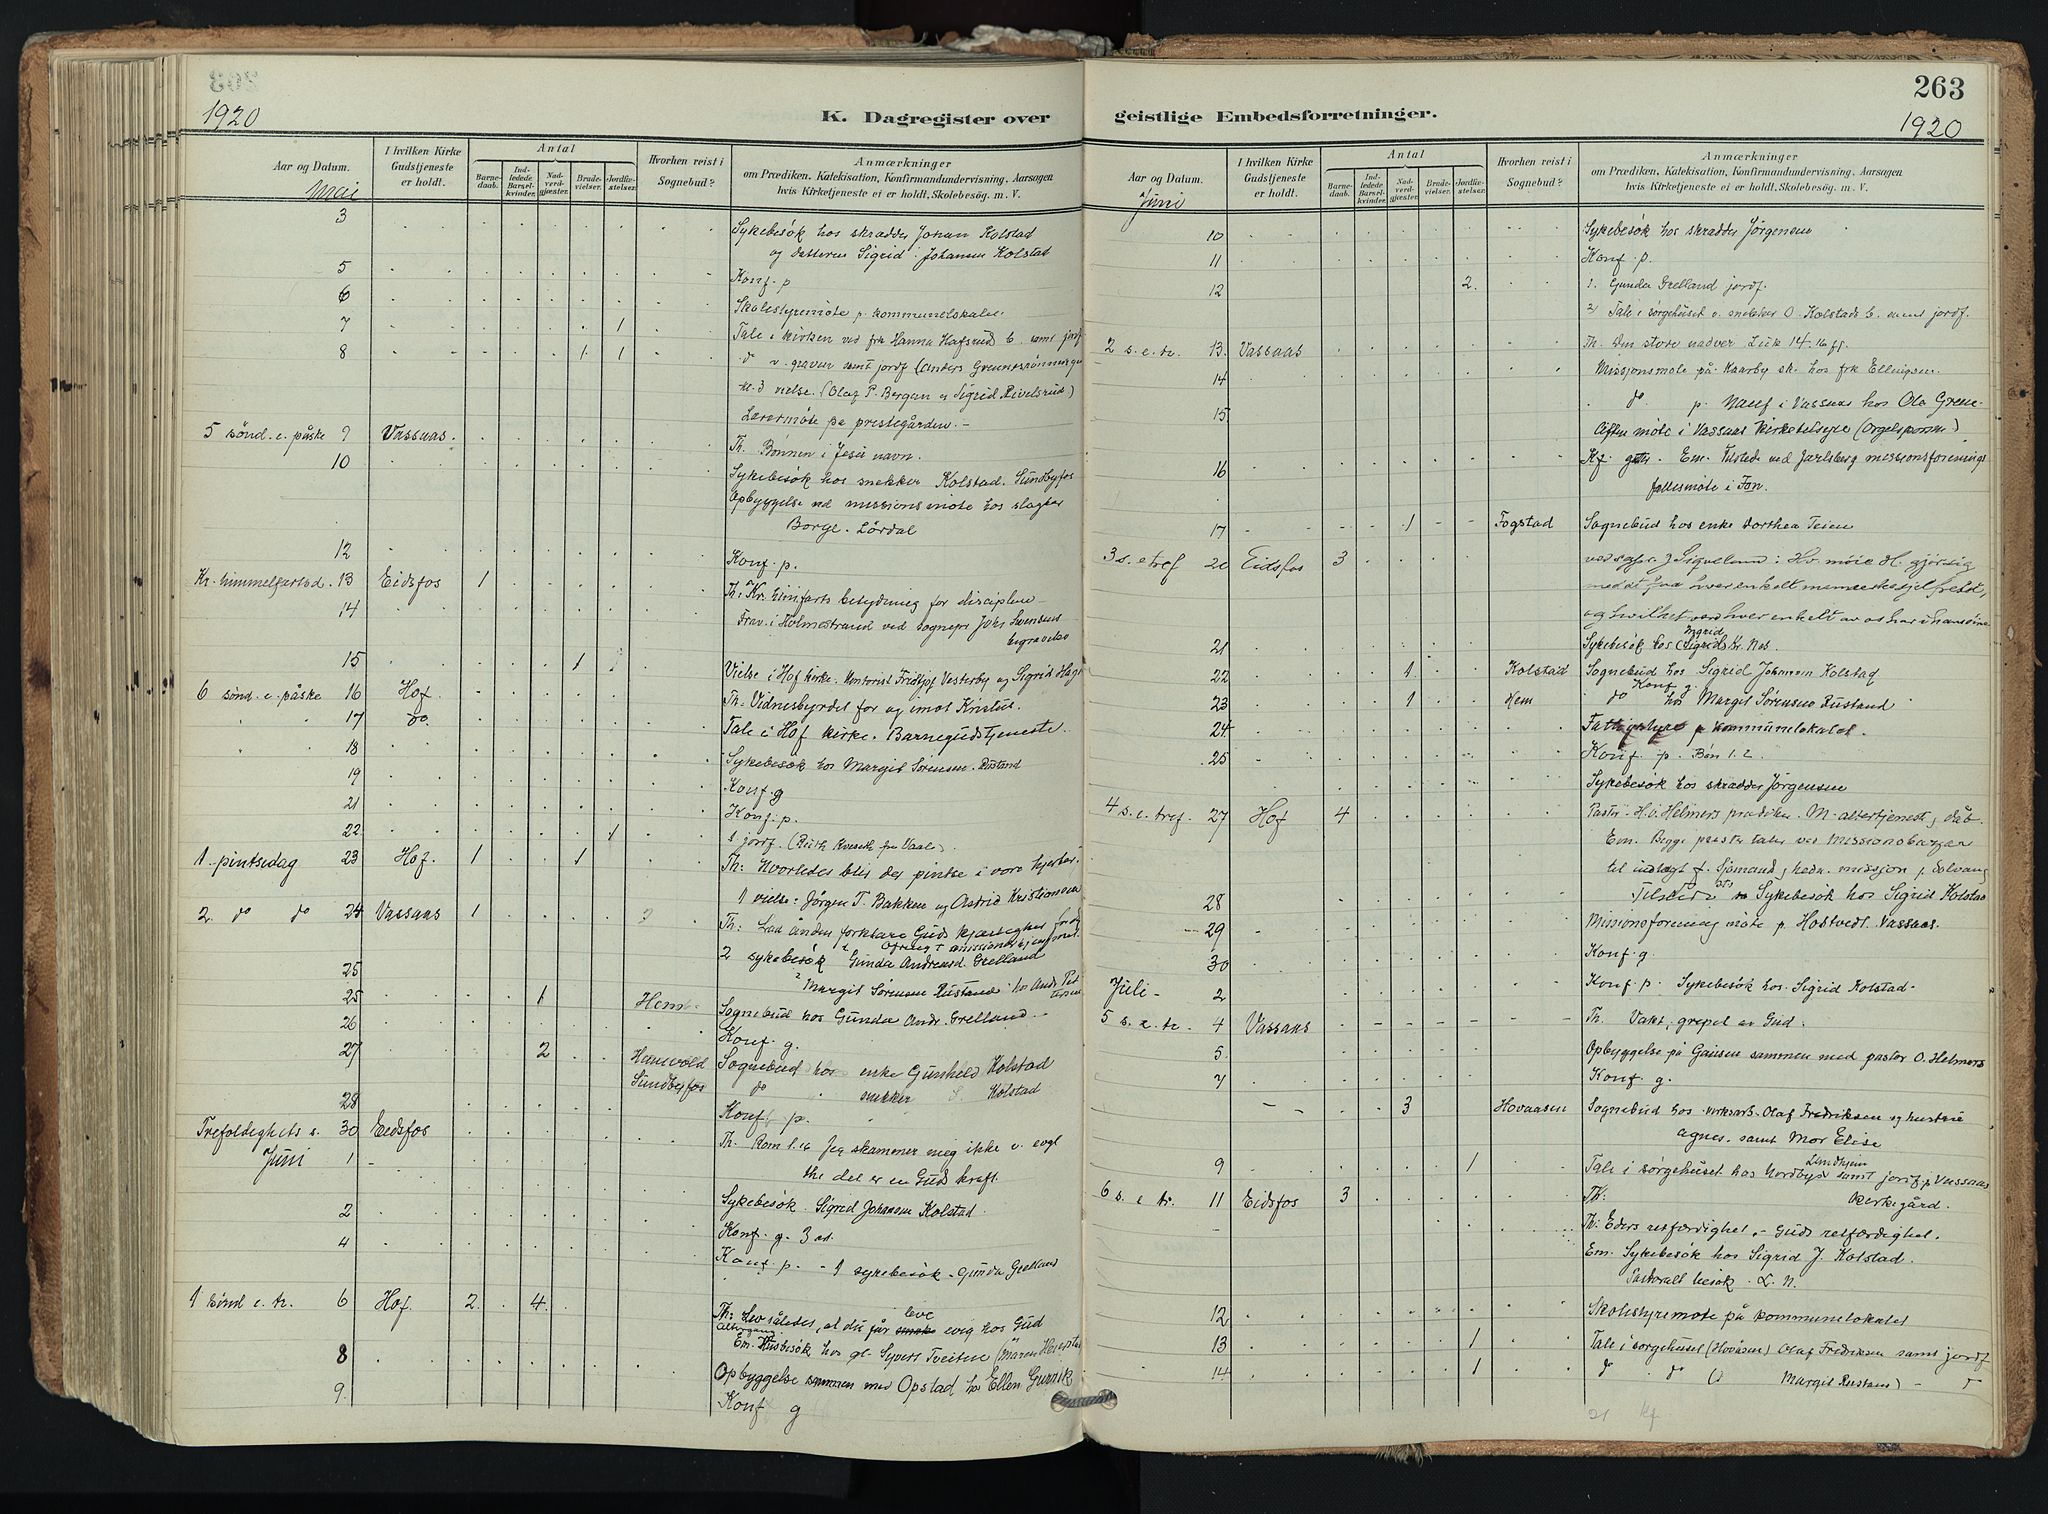 263
1920
K. Dagregister over
geistlige Embedsforretninger.
1920
Aar og Datum.
I hvilken Kirke Gudstjeneste er holdt.
Antal
Barnedaab.
Indledede Barselkvinder.
Nadverdgjæster.
Brudevielser.
Jordfæstelser.
Hvorhen reist i Sognebud?
Anmærkninger
om Prædiken, Katekisation, Konfirmandundervisning, Aarsagen
hvis Kirketjeneste ei er holdt, Skolebesög. m. V.
Mai
3 Sykebesök hos skrædder Johan Kolstad
og datteren Sigrid Johansen Kolstad
5 Konf. p
6 Skolestyremöte p. kommunelokalet
7 1 Tale i kirken ved frk Hanna Hafsrud b. samt jordf
8 1 1 do v. graven samt jordf (Anders
kl. 3 vielse. (Olaf P. Bergan og Sigrid
Lærermöte på prestegården.
5 sönd. e. påske 9 Vassaas. Th. Bönnen i Jesu navn.
10 Sykebesök hos snekker Kolstad. Sundbyfos
Opbyggelse ved missionsmöte hos slagter
Borge. Lördal
12 Konf. p.
Kr. himmelfartsd. 13 Eidsfos 1 Th. Kr. himlfarts betydning for disciplene
14 Frav. i Holmestrand ved sognepr Johs Svensens
begravelse
15 1 Vielse i Hof kirke. Kontorist Fridtjof Vesterby og Sigrid
6 sönd. e. påske 16 Hof. Th. Vidnesbyrdet for og imot Kristus.
17 do. Tale i Hof kirke. Barnegudstjeneste.
18 Sykebesök hos Margit Sörensen Rustand
19 Konf. g
21 Konf. p.
22 1 1 jordf. (Ruth fra Vaale)
1 pintsedag 23 Hof. 1 1 Th: Hvorledes blir der pintse i vore hjerter.
1 vielse: Jörgen T. Bakken og Astrid Kristiansen
2. do do 24 Vassaas 1 Th: Lad ånden forklare Guds kjærlighet for dig
2 sykebesök Gunda Andreasd. Grelland
25 Margit Sörensen Rustand
25 1 Hem Sognebud hos Gunda Andr. Grelland
26 Konf. g.
27 2 Sognebud hos enke Gunhild Kolstad
Sundbyfos do snekker S. Kolstad
28 Konf. p.
Trefoldighets s. 30 Eidsfos Th. Rom 1.16 Jeg skammer meg ikke v. evgl
Juni 1 thi det er en Guds kraft.
2 Sykebesök. Sigrid Johansen Kolstad.
Konf. g.
4 Konf. p. - 1 sykebesök - Gunda Grelland
1 sönd e. tr. 6 Hof. 2. 4. Th: Lev således, at du får leve evig hos Gud
Em. Husbesök hos gl. Syvert Tveiten
8 Opbyggelse sammen med Opstad, hos Ellen
9. Konf g
Aar og Datum.
I hvilken Kirke Gudstjeneste er holdt.
Antal
Barnedaab.
Indledede Barselkvinder.
Nadverdgjæster.
Brudevielser.
Jordfæstelser.
Hvorhen reist i Sognebud?
Anmærkninger
om Prædiken, Katekisation, Konfirmandundervisning, Aarsagen
hvis Kirketjeneste ei er holdt, Skolebesög. m. V.
Juni
10 Sykebesök hos skrædder Jörgensen
11 Konf. p.
12 2. 1. Gunda Grelland jordf.
2) Tale i sörgehuset v. snekker O. Kolstads b. samt jordf.
2 s. e. tr. 13. Vassaas Th. Den store nadver Luk 14.16 ff.
14 Missjonsmöte på Haarby sk. hos frk Ellingsen.
15 do p. i Vassaas hos Ola Grene
Aften möte i Vassaas kirkebelyse
16 Kf. gutter. Em. Tilstede ved Jarlsberg missionsforenings
fællesmöte i Fon.
17 1 Fogstad Sognebud hos enke Dorthea Teien
3 s. e tref 20 Eidsfos 3
21 Sykebesök hos Ingrid Nes.
22 1 Kolstad Sognebud hos Sigrid Johansen Kolstad
Konf g.
23 1 Hem do hos Margit Sörensen Rustand
24 p kommunelokalet.
25 Konf. p. Bön 1. 2
Sykebesök hos skrædder Jörgensen
4 s. e. tref. 27 Hof 4 Pastor H. O. Helmers prædiken. M. altertjenest, dåb
Em. Begge prester taler ved missionsbazar
til indtægt f. Sjömand, hedn. missjon p. Solvang
28 Sykebesök hos Sigrid Kolstad
29 Missionsforening möte p. Hostvedt. Vassaas.
30 Konf. g.
Juli - 2 Konf. p. Sykebesök hos Sigrid Kolstad.
5 s. e. tr. 4 Vassaas Th.
5. Opbyggelse på sammen med pastor O. Helmers
7 Konf. g.
3 Hovaasen Sognebud hos verksarb. Olaf Fredriksen og hustrue
Agnes. samt Mor Elise
9 1 Tale i sörgehuset hos Nordby samt jordf. p Vassaas
kirkegård.
6 s. e tr. 11 Eidsfos 3 Th:
Th: Eders retfærdighet. - Guds retfærdighet.
Em. Sykebesök hos Sigrid J. Kolstad.
Pastoralt besök. L. N.
12 Skolestyremöte på kommunelokalet
13 1 Tale i sörgehuset (Hovåsen) Olaf Fredriksen samt jordf
14 1 do do () Margit Rustand)
21 kf.